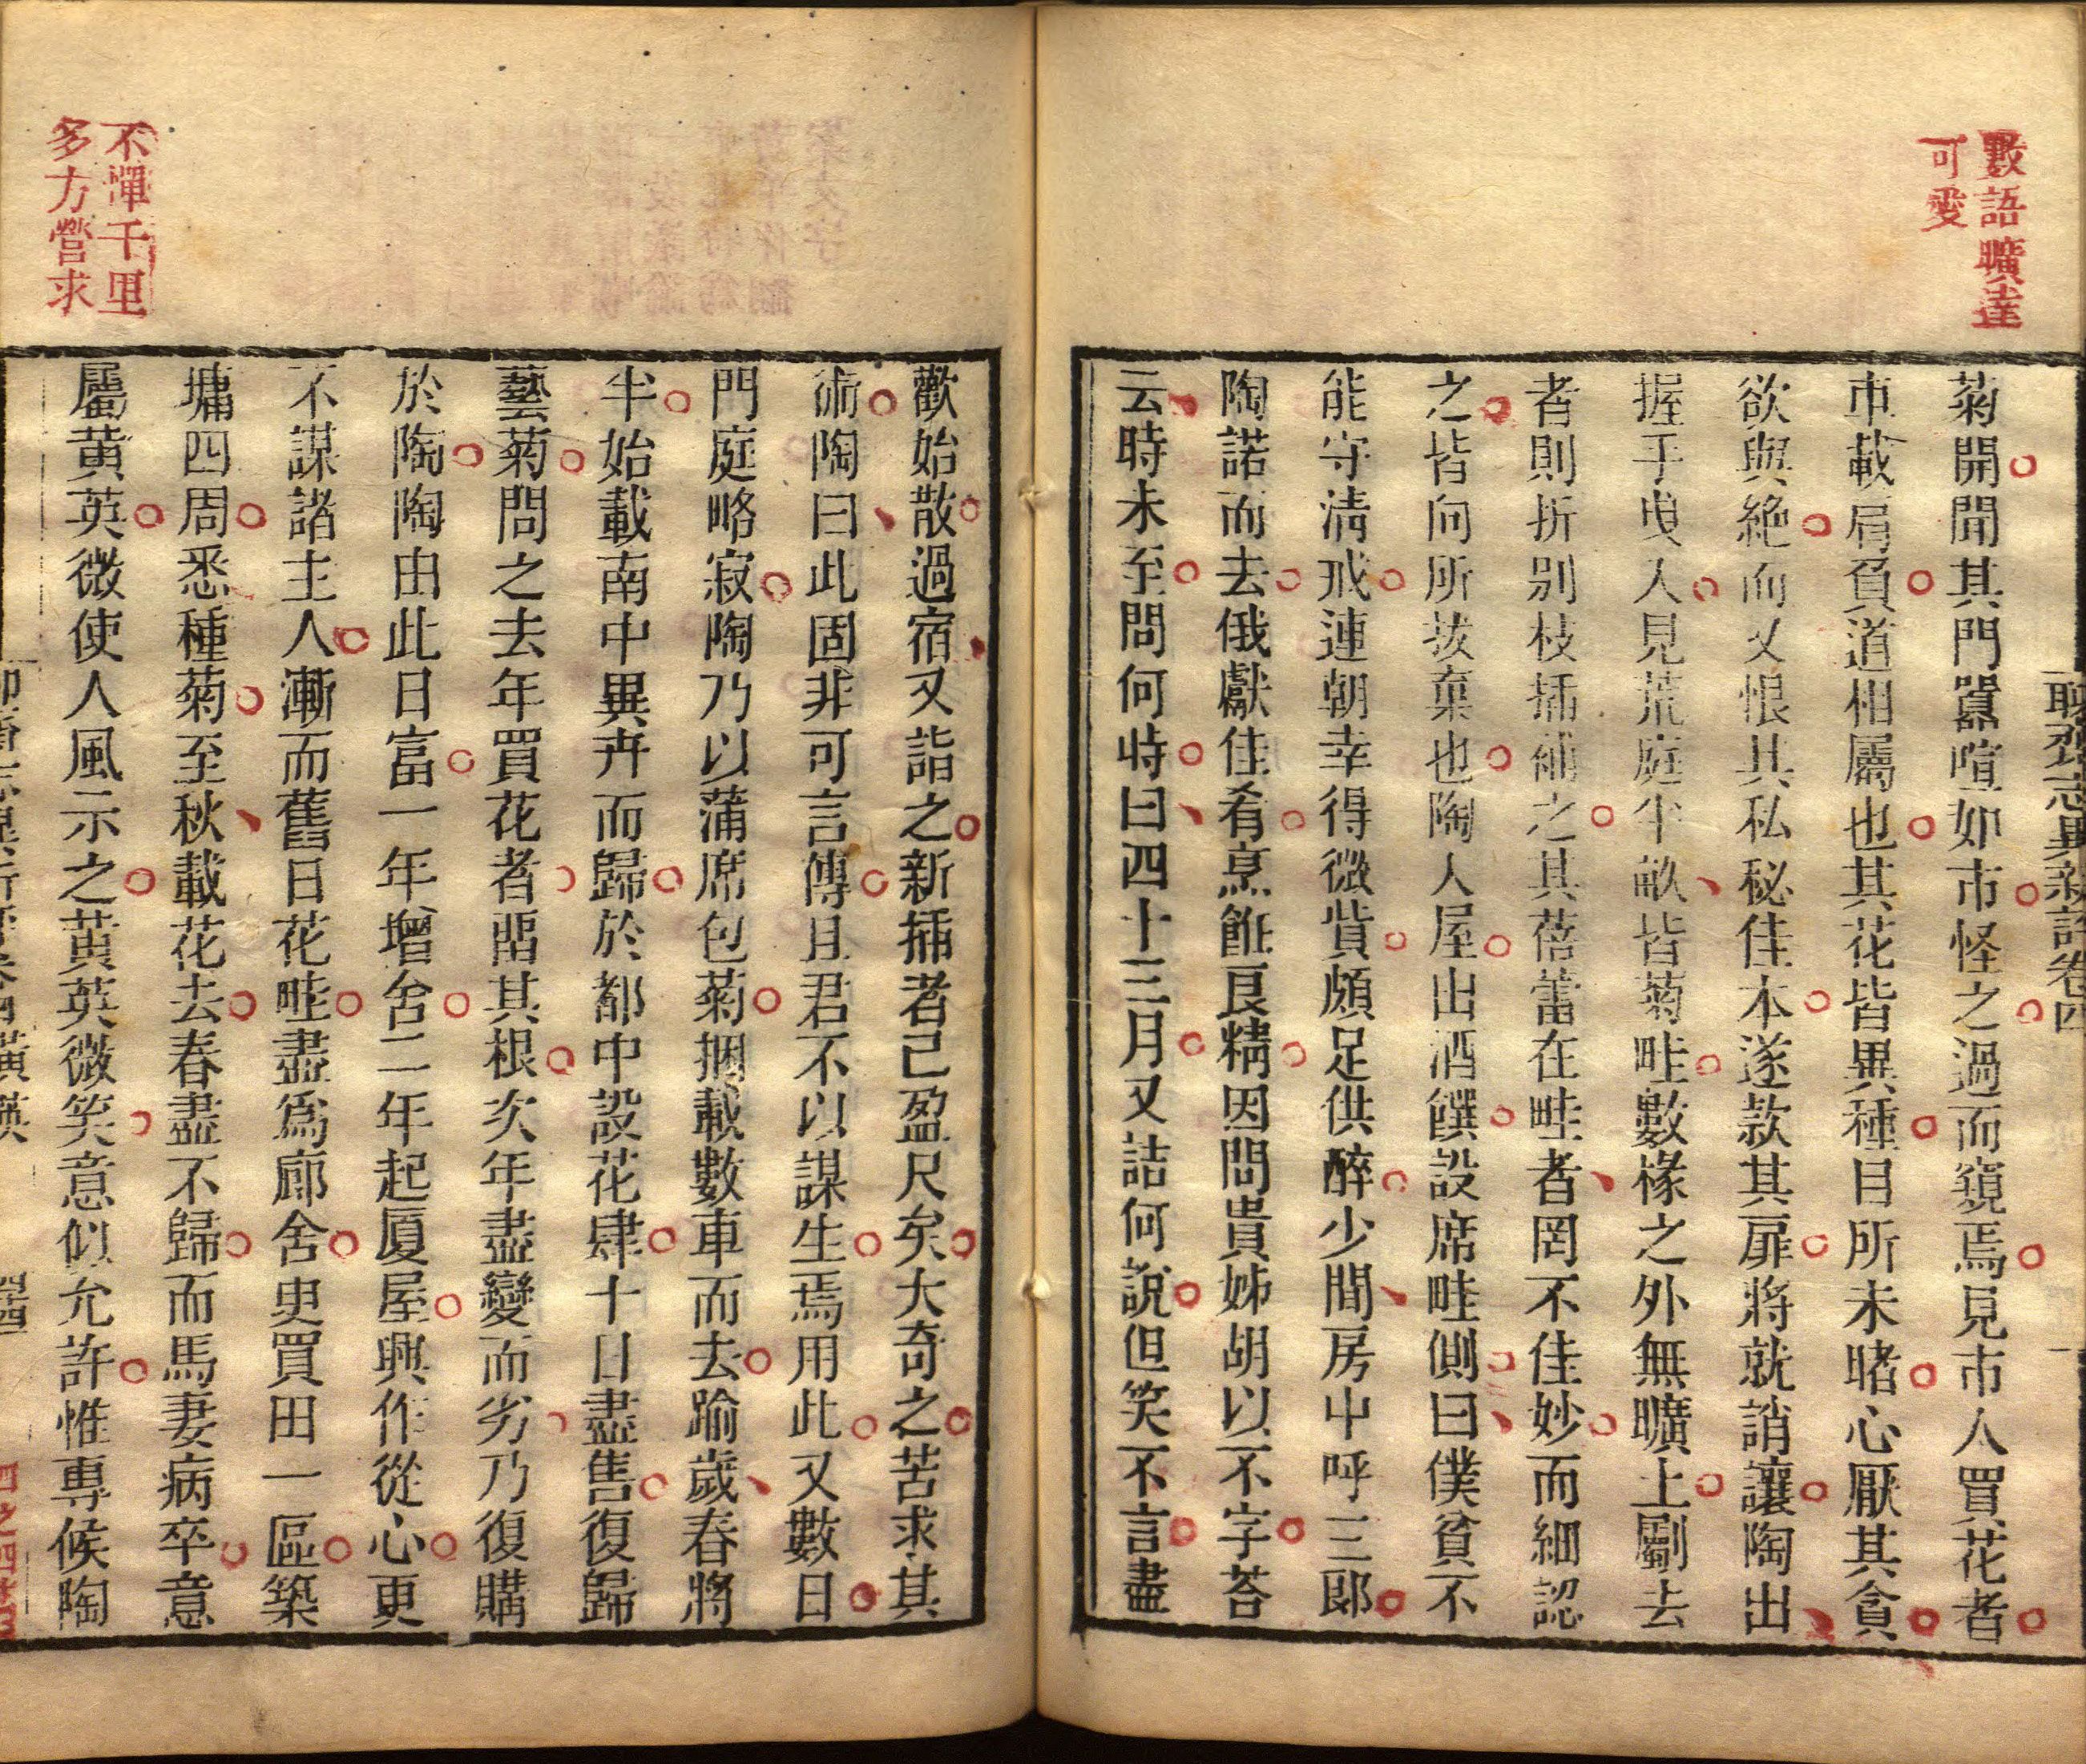 數語曠達
可愛
聊齋志異新評卷四
菊開聞其門囂喧如市怪之過而窺焉見市人買花者
車載肩負道相屬也其花皆異種目所未睹心厭其貪
欲與絶而又恨其私秘佳本遂款其扉將就誚讓陶出
握手曳入見荒庭半畝皆菊畦數椽之外無曠土劚去
者則折别枝插補之其蓓蕾在畦者罔不佳妙而細認
之皆向所拔棄也陶人屋出酒饌設席畦側曰僕貧不
能守淸戒連朝幸得微貲頗足供醉少間房中呼三郎
陶諾而去俄獻佳肴烹飪良精因問貴姊胡以不字荅
云時未至問何時曰四十三月又詰何說但笑不言盡
歡始散過宿又詣之新插者已盈尺矣大奇之苦求其
術陶曰此固非可言傳且君不以謀生焉用此又數日
門庭略寂陶乃以蒲席包菊捆載數車而去踰歲春將
半始載南中異卉而歸於都中設花肆十日盡售復歸
藝菊問之去年買花者畱其根次年盡變而劣乃復購
於陶陶由此日富一年增舍二年起厦屋興作從心更
不謀諸主人漸而舊日花畦盡爲廊舍更買田一區築
墉四周悉種菊至秋載花去春盡不歸而馬妻病卒意
屬黄英微使人風示之黄英微笑意似允許惟專候陶
不憚千里
多方營求